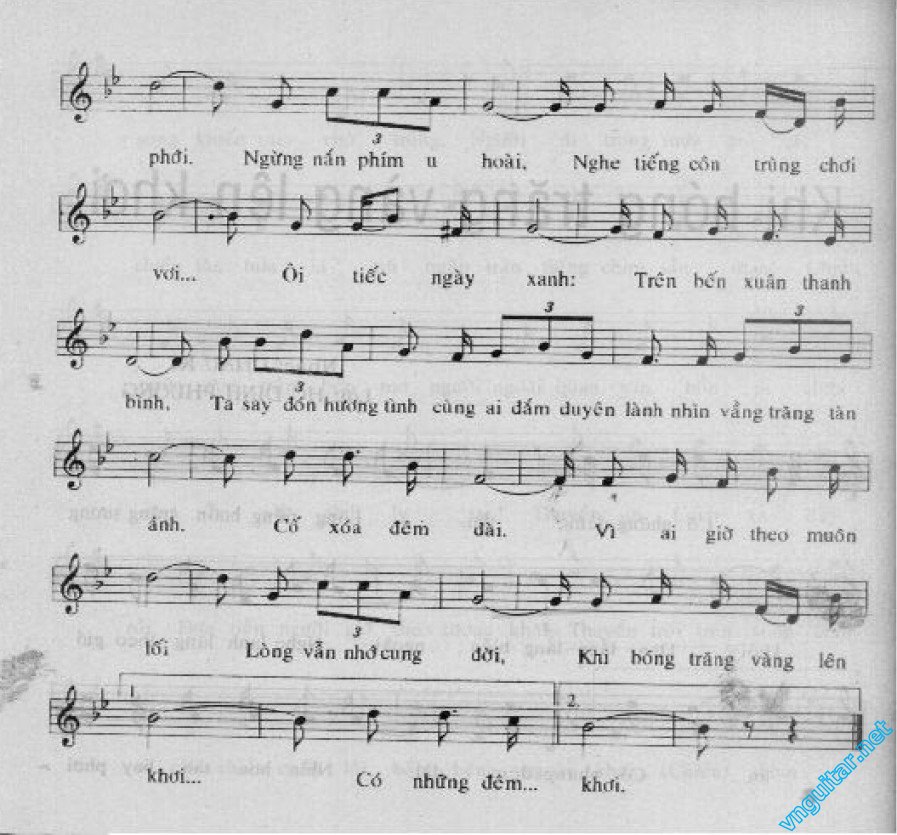 3
phới. Ngừng nấn phím u hoài, Nghe tiếng côn trùng chơi
vơi... Ôi tiếc ngày xanh: Trên bến xuân thanh
3
3
bình, Ta say đón hương tình cùng ai đắm duyên lành nhìn vầng trăng tàn
ảnh. Cố xóa đêm dài. Vì ai giờ theo muôn
3
lối, Lòng vẫn nhớ cung đời, Khi bóng trăng vàng lên
1.
2.
khơi... Có những đêm... khơi.
vnguitar.net